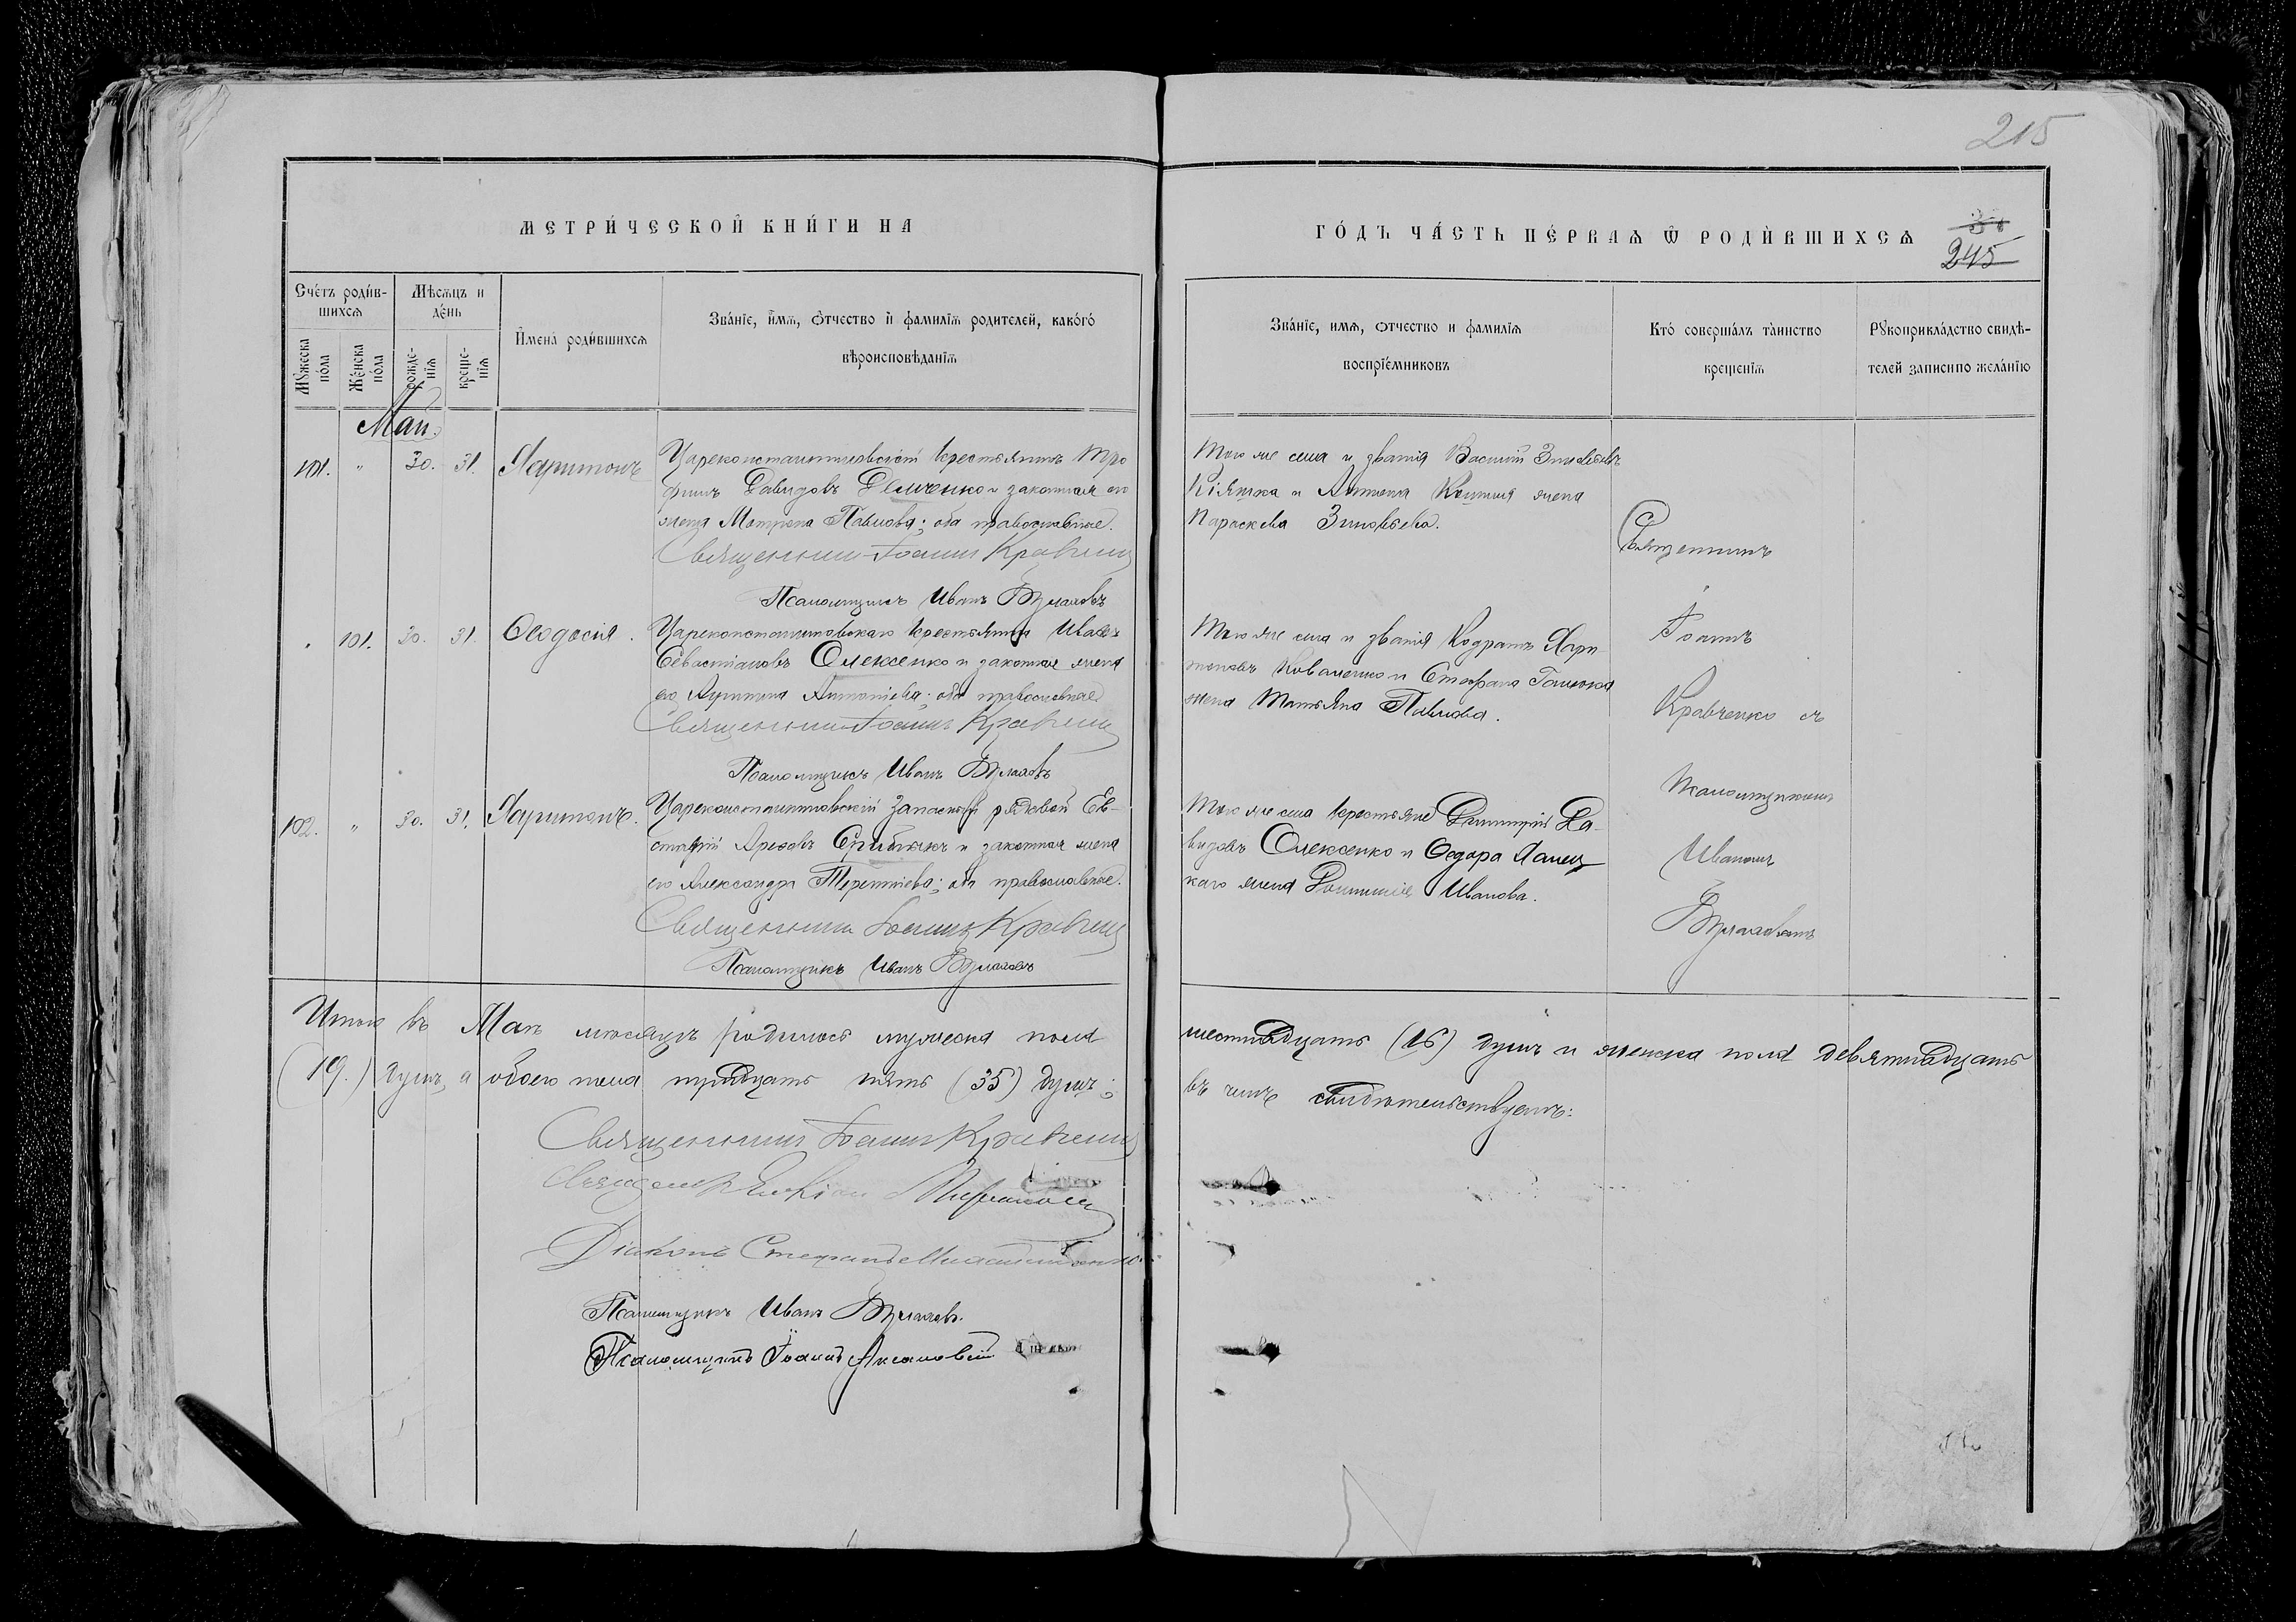 215
МЕТРИ́ЧЕСКОЙ КНИ́ГИ НА
ГО́ДЪ ЧА́СТЬ ПЕ́РВАѦ Ѿ РОДИ́ВШИХСѦ
245
Сче́тъ роди́в-
шихсѧ
Мѣсѧцъ и
де́нь
Мꙋ́жеска
по́ла
Же́нска
по́ла
рожде-
нїѧ
креще-
нїѧ
И҆мена̀ роди́вшихсѧ
Зва́нїе, и҆́мѧ, ѻ҆́тчество и҆ фамилїѧ родителей, како́гѡ
вѣроисповѣданїѧ
Зва́нїе, имѧ, ѻтчество и фамилїѧ
воспрїе́мниковъ
Кто́ соверша́лъ та̀инство
крещенїѧ
Рꙋкоприкла́дство свидѣ-
телей записи по жела́нїю
Май
101. " 30. 31. Харитонъ
Цареконстантиновскій крестьянинъ Тро
фимъ Давидовъ Демченко и законная его
жена Матрена Павлова; оба православные.
Священникъ Іоаннъ Кравченко
Псаломщикъ Иванъ
Того же села и званія Василій Зиновьевъ
Кіяшка и жена
Параскева Зиновьева.
Священникъ
Іоаннъ
Кравченко съ
Псаломщикомъ
Иваномъ
" 101. 30. 31. Ѳеодосія.
Цареконстантиновскаго крестьянина Иванъ
Севастіановъ Олексенко и законная жена
его Антоніева; оба православные
Священникъ Іоаннъ Кравченко
Псаломщикъ Иванъ
Того же села и званія Кодратъ Хари-
тоновъ Коваленко и Стефана
жена Татьяна Павлова.
102. " 30. 31. Харитонъ.
Цареконстантиновскій запасный рядовой Ев-
стафій и законная жена
его Александра Терентіева; оба православные.
Священникъ Іоаннъ Кравченко
Псаломщикъ Иванъ
Того же села крестьяне Димитрій Да-
видовъ Олексенко и Ѳедора
каго жена Иванова.
Итого въ Маѣ мѣсяцѣ родилось мужеска пола
шестнадцать (16) душъ и женска пола девятнадцать
(19.) душъ, а обоего пола тридцать пять (35) душъ;
въ чемъ свидѣтельствуемъ:
Священникъ Іоаннъ Кравченко
Священникъ
Діаконъ Стефанъ
Псаломщикъ Иванъ
Псаломщикъ Іоаннъ